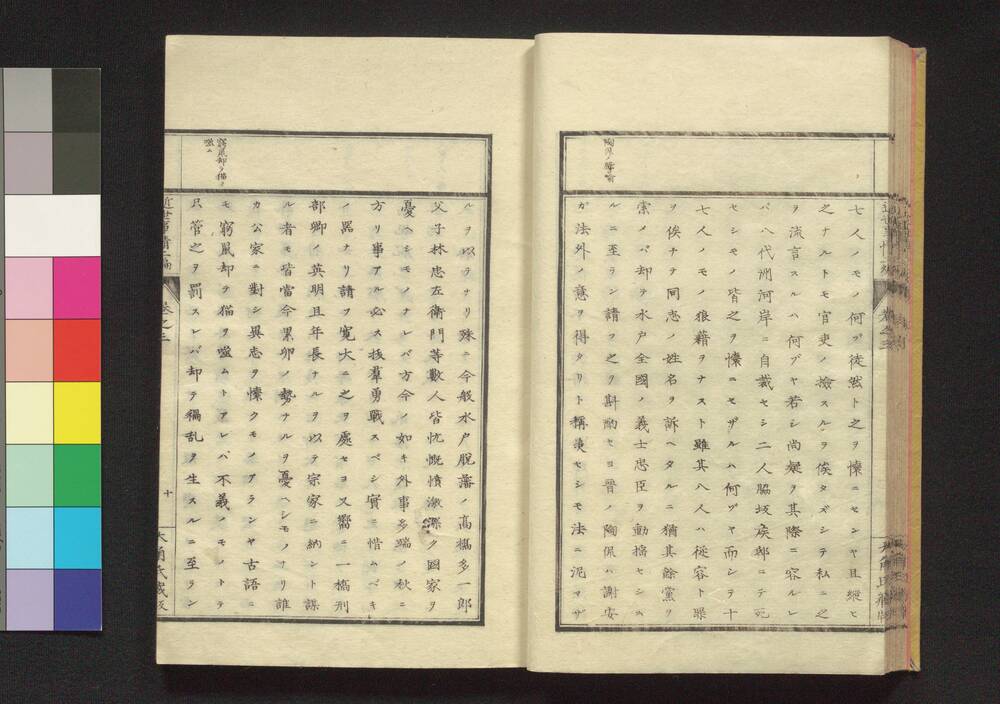 七人ノモノ何ゾ徒然ト之ヲ愫ニセンヤ且縦ヒ
之ナルトモ官吏ノ撿スルヲ俟タズシテ私ニ之
ヲ流言スルハ何ゾヤ若シ尚疑ヲ其際ニ容ルレ
バ八代洲河岸ニ自裁セシ二人脇坂矦邸ニテ死
セシモノ皆之ヲ愫ニセザルハ何ゾヤ而シテ十
七人ノモノ狼藉ヲナスト雖其八人ハ從容ト罪
ヲ俟ナテ同志ノ姓名ヲ訴ヘタルニ猶其餘黨ヲ
索メバ却テ水户全國ノ義士忠臣ヲ動揺セシム
ルニ至ラン請フ之ヲ斟酌セヨ晉ノ陶侃ハ謝安
ガ法外ノ意ヲ得タリト稱美セシモ法ニ泥マザ
ルヲ以テナリ殊ニ今般水户脱藩ノ髙橋多一郎
父子林忠左衛門等數人皆忼慨憤激深ク國家ヲ
憂ヘシモノナレバ方今ノ如キ外事多端ノ秋ニ
方リ事アル必ス抜羣勇戰スベシ實ニ惜ムベキ
ノ器ナリ請フ寛大ニ之ヲ處セヨ又嚮ニ一橋刑
部卿ノ英明且年長ナルヲ以テ宗家ニ納ント謀
ル者モ皆當今累卵ノ勢ナルヲ憂ヘシモノナリ誰
カ公家ニ對シ異志ヲ愫クモノアランヤ古語ニ
モ窮鼠却テ猫ヲ噬ムトアレバ不義ノモノトテ
只管之ヲ罰スレバ却テ禍乱ヲ生スルニ至ラン
窮鼠却ヲ猫ノ
噬ム
近世事情二編
卷之三
十